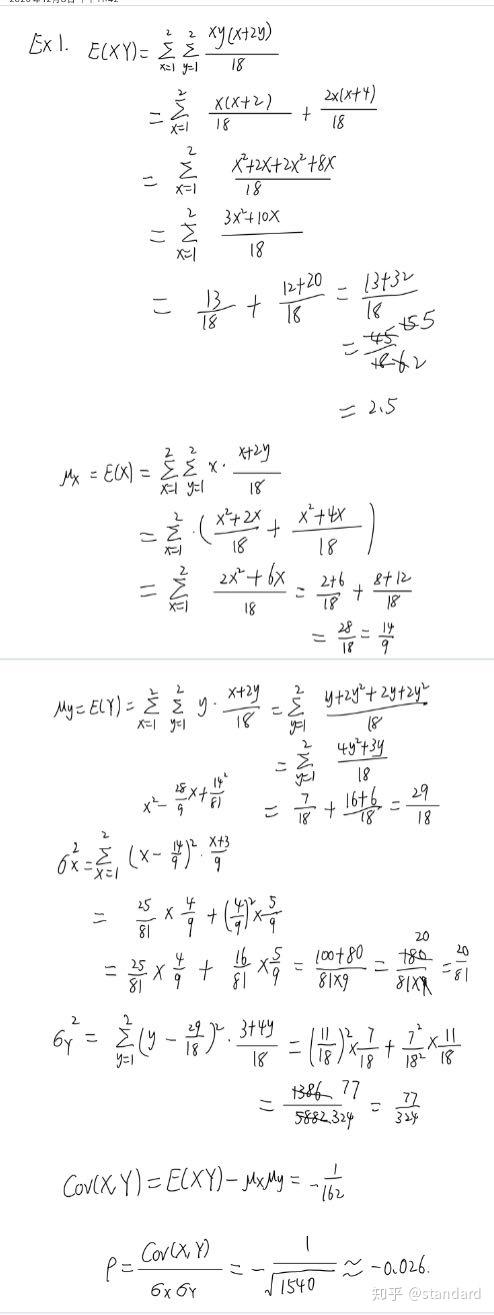 Ex1. E(XY) = Σ_{x=1}^{2} Σ_{y=1}^{2} xy(x+2y)/18
= Σ_{x=1}^{2} x(x+2)/18 + 2x(x+4)/18
= Σ_{x=1}^{2} x²+2x+2x²+8x/18
= Σ_{x=1}^{2} 3x²+10x/18
= 13/18 + 12+20/18 = 13+32/18
= 45 15 5/18 6 2
= 2.5
μx = E(X) = Σ_{x=1}^{2} Σ_{y=1}^{2} x · x+2y/18
= Σ_{x=1}^{2} · (x²+2x/18 + x²+4x/18)
= Σ_{x=1}^{2} 2x²+6x/18 = 2+6/18 + 8+12/18
= 28/18 = 14/9
μy = E(Y) = Σ_{x=1}^{2} Σ_{y=1}^{2} y · x+2y/18 = Σ_{y=1}^{2} y+2y²+2y+2y²/18
= Σ_{y=1}^{2} 4y²+3y/18
x² - 28/9 x + 14²/81
= 7/18 + 16+6/18 = 29/18
σx² = Σ_{x=1}^{2} (x - 14/9)² · x+3/9
= 25/81 × 4/9 + (4/9)² × 5/9
= 25/81 × 4/9 + 16/81 × 5/9 = 100+80/81×9 = 180 20/81×9 = 20/81
σY² = Σ_{y=1}^{2} (y - 29/18)² · 3+4y/18 = (11/18)² × 7/18 + 7²/18² × 11/18
= 1386 77/5882 324 = 77/324
Cov(X,Y) = E(XY) - μxμy = -1/162
ρ = Cov(X,Y)/σxσY = - 1/√1540 ≈ -0.026.
知乎 @standard